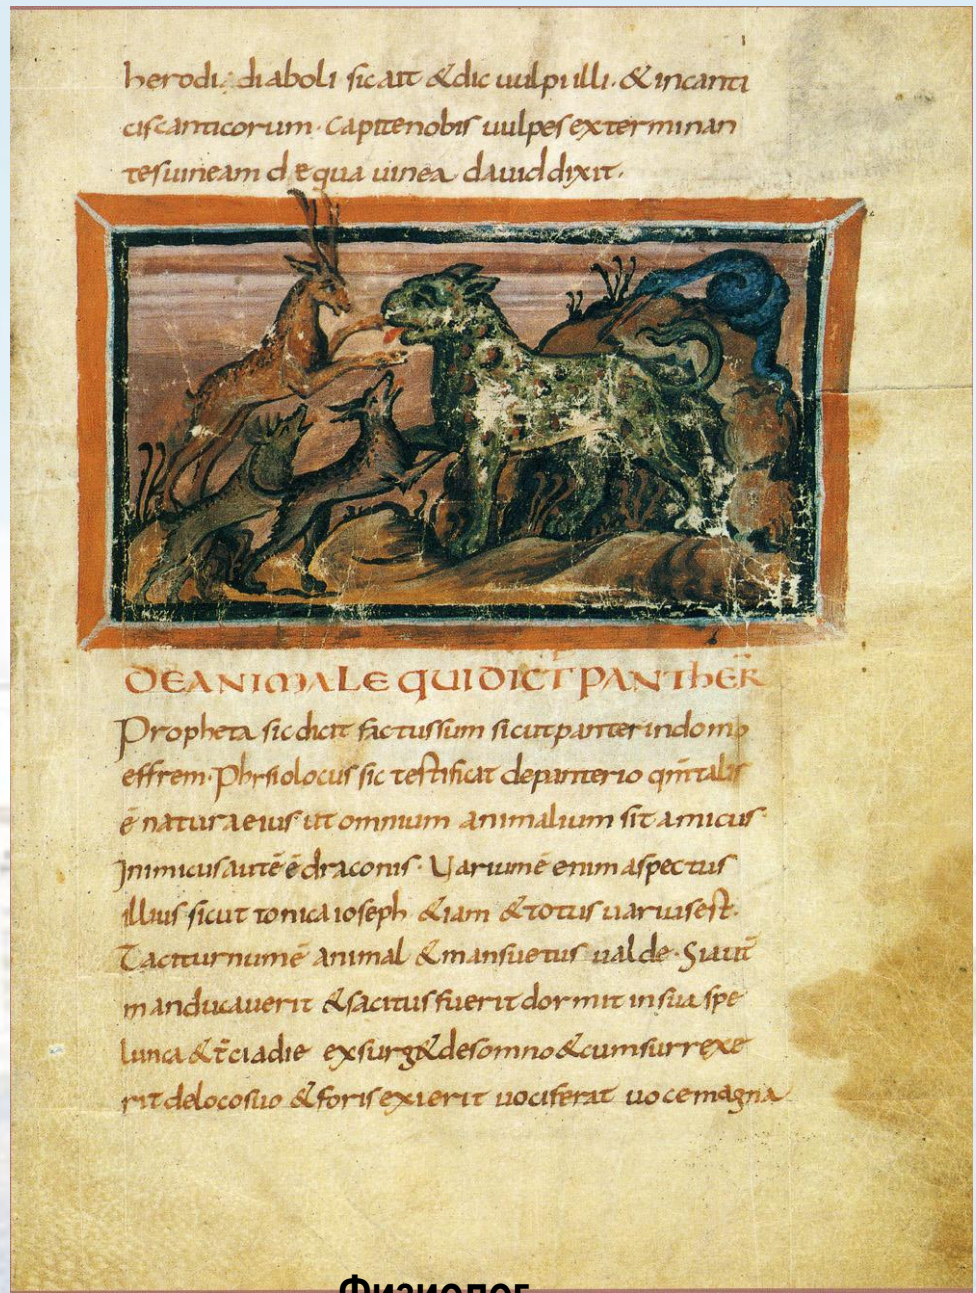 herodi diaboli sic ait & dic uulpi illi · & in canti
cis canticorum · Capite nobis uulpes exterminan
tes uineam de qua uinea dauid dixit ·
DE ANIMALE QUI DICT̄ PANTHER̄
Propheta sic dicit factus sum sicut panter in domo
effrem · Phisiolocus sic testificat de panterio qm̄ talis
ē natura eius ut omnium animalium sit amicus
Inimicus autē ē draconis · Uarium ē enim aspectus
illius sicut tonica ioseph & iam & totus uarius est ·
Taciturnum ē animal & mansuetus ualde · Si autē
manducauerit & sacitus fuerit dormit in sua spe
lunca & t̄cia die exsurg& de somno & cum surrexe
rit de loco suo & foris exierit uociferat uoce magna
Физиолог